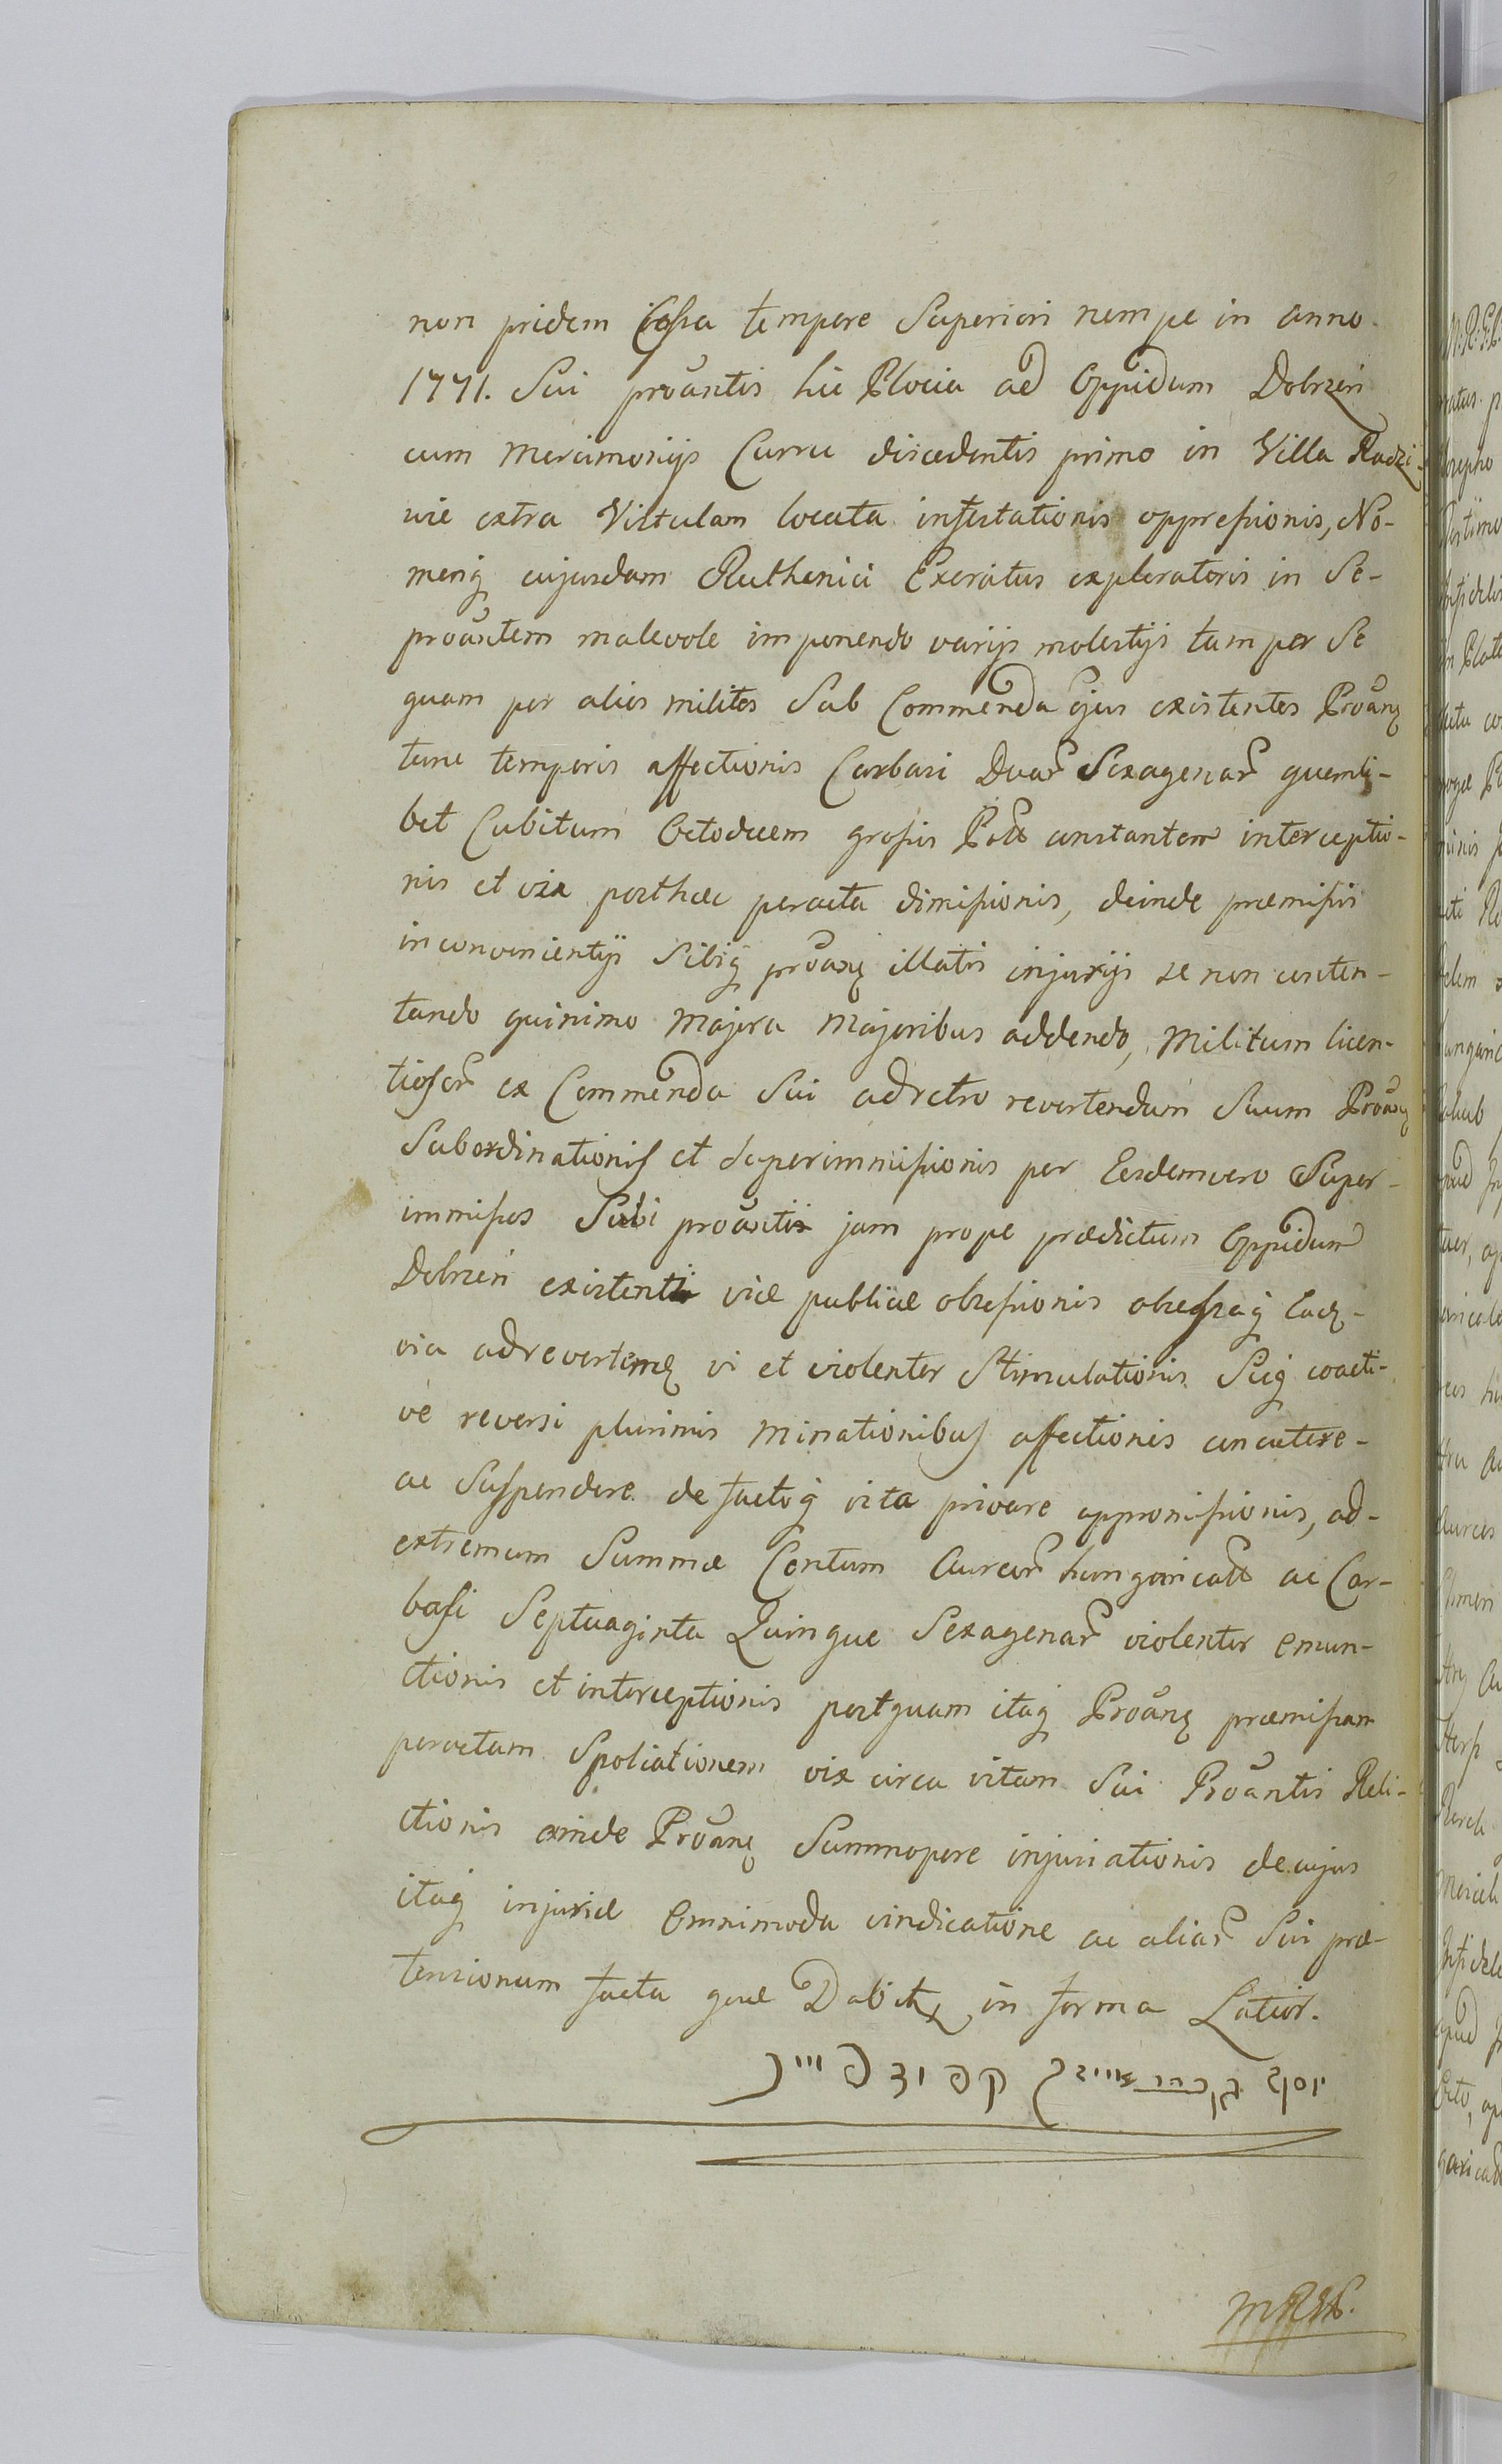 non pridem tempore Superiori nempe in anno.
1771. Sui proãntis hic Plocia ad Oppidum Dobrzen
cum Mercimonijs Curru discedentis primo in Villa Radzi-
wie extra Vistulam locata infestationis oppressionis, No-
menq cujusdam Ruthenici Exercitus exploratoris in Se-
proãntem malevole imponendo varijs molestijs tam per Se
quam per alios milites Sub Commenda ejus existentes Proãnẽ
tunc temporis affectionis Carbasi Duar Sexagenar quemli-
bet Cubitum Octodecem grossis Poll constantem interceptio-
nis et vix posthac peracta dimissionis, deinde præmissis
inconvenientijs Sibiq proãnẽ illatis injurijs se non conten-
tando quinimo Majora Majoribus addendo, Militum licen-
tiosor ex Commenda Sui ad retro revertendum Suum Proãnẽ
Subordinationis et Superimmissionis per Eosdemvero Super-
immissos Sibi proãnti jam prope prædictum Oppidum
Dobrzen existenti viæ publicæ obsessionis obsessaq Eadẽ-
via ad revertendẽ vi et violenter Stimulationis Suiq coacti-
ve reversi plurimis Minationibus affectionis concutere-
ac Suspendere de factoq vita privare appromissionis, ad-
extremum Summæ Centum Aureor hungaricall ac Car-
basi Septuaginta Quinque Sexagenar violenter emun-
ctionis et interceptionis postquam itaq Proãnẽ præmissam
peractam Spoliationem vix circa vitam Sui Proãntis Reli-
ctionis Proãnẽ Summopere injuriationis de cujus
itaq injuriæ Omnimoda vindicatione ac aliar Sui præ-
tensionum facta quæ Dabitẽ in forma Latior.
יוסף